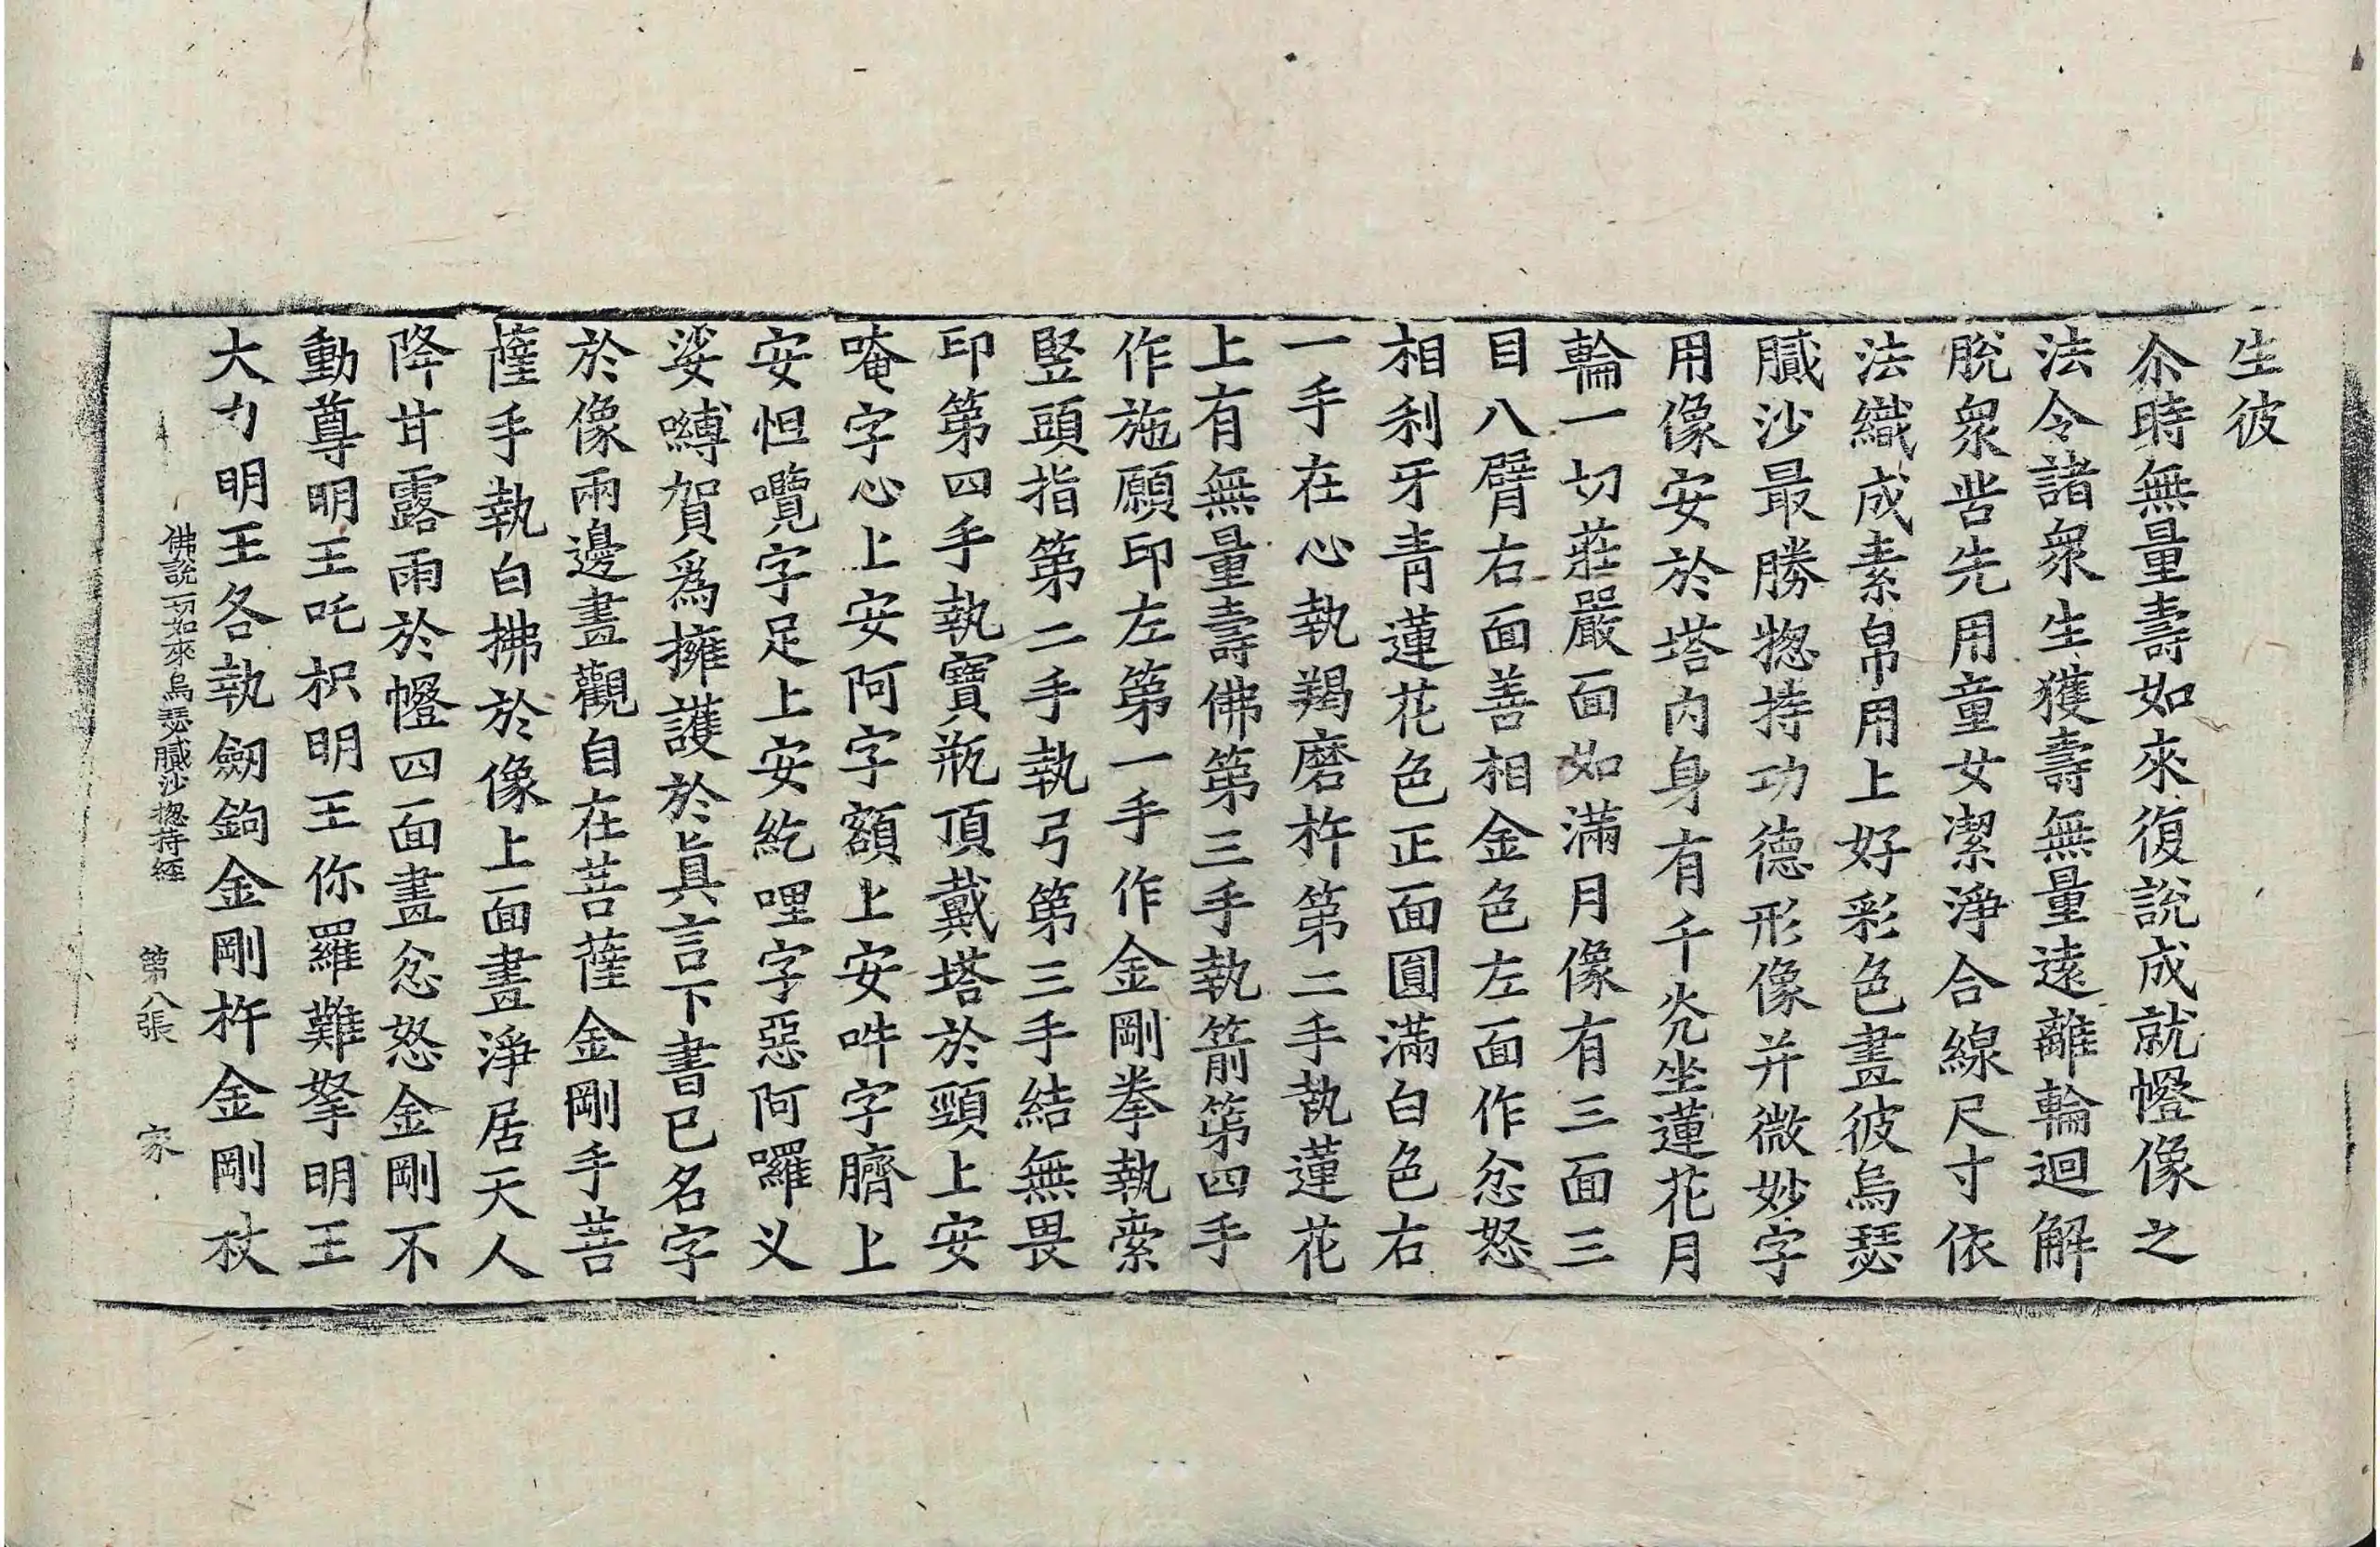 生彼
尒時無量壽如來復說成就㡧像之
法令諸衆生獲壽無量遠離輪迴解
脫衆苦先用童女潔淨合線尺寸依
法織成素帛用上好彩色畫彼烏瑟
膩沙最勝揔持功德形像并微妙字
用像安於塔內身有千光坐蓮花月
輪一切莊嚴面如滿月像有三面三
目八臂右面善相金色左面作忿怒
相利牙青蓮花色正面圓滿白色右
一手在心執羯磨杵第二手執蓮花
上有無量壽佛第三手執箭第四手
作施願印左第一手作金剛拳執索
竪頭指第二手執弓第三手結無畏
印第四手執寶瓶頂戴塔於頸上安
唵字心上安阿字額上安吽字臍上
安怛囕字足上安紇哩字惡阿囉义
娑嚩賀爲擁護於眞言下書已名字
於像兩邊畫觀自在菩薩金剛手菩
薩手執白拂於像上面畫淨居天人
降甘露雨於㡧四面畫忿怒金剛不
動尊明王吒枳明王你羅難拏明王
大力明王各執劒鉤金剛杵金剛杖
佛說一切如來烏瑟膩沙揔持經 第八張 家